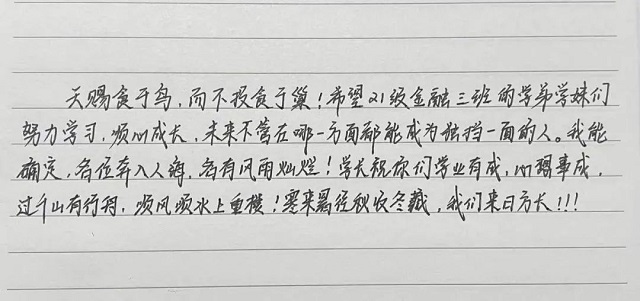 天赐食于鸟，而不投食于巢！希望21级金融三班的学弟学妹们
努力学习，顺心成长，未来不管在哪一方面都能成为独挡一面的人。我能
确定，各位奔入人海，各有风雨灿烂！学长祝你们学业有成，心想事成，
过千山有行舟，顺风顺水上重楼！寒来暑往秋收冬藏，我们来日方长!!!